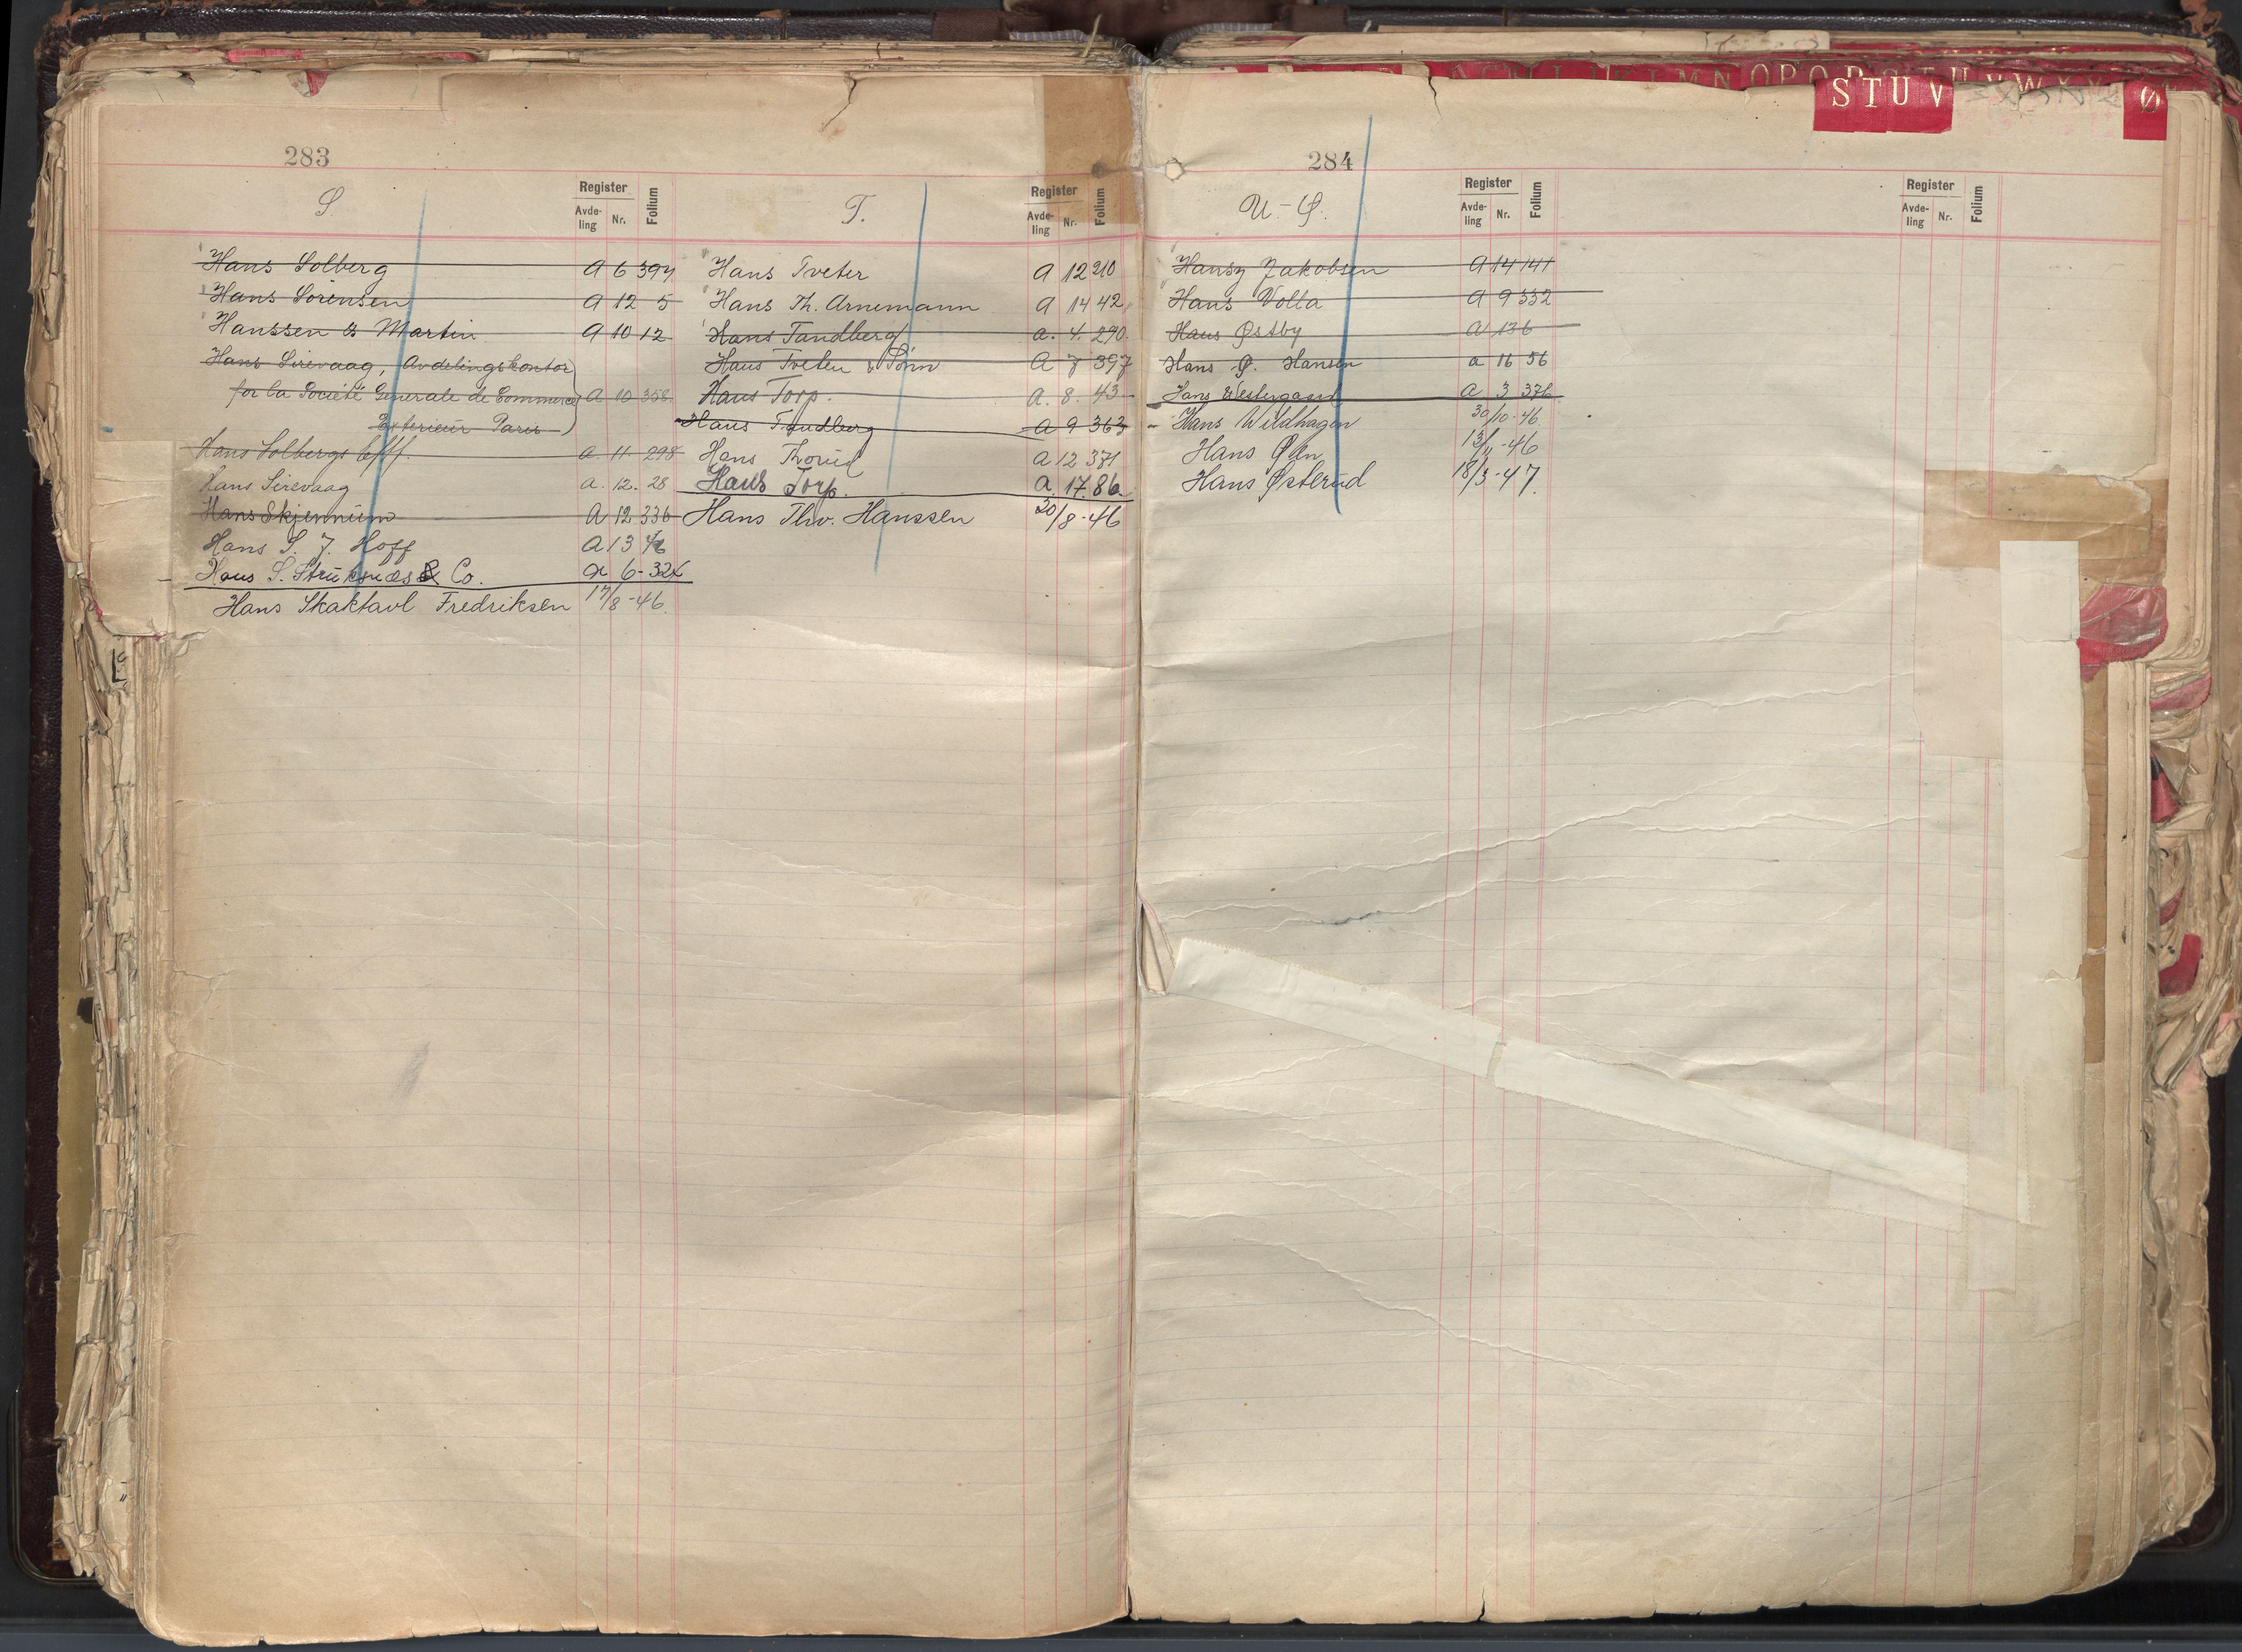 283
S.
Register
Avde-
ling
Nr.
Folium
Hans Solberg A 6 394
Hans Sörensen A 12 5
Hanssen & Martin A 10 12
Hans Sirevaag, Avdelingskontor
for la Société Generale de Commerce A 10 358
Exterieur Paris
Hans Solbergs Eftf. a. 11 298
Hans Sirevaag a. 12. 28
Hans Skjennum A 12 336
Hans S. J. Hoff A 13
Hans S. Struksnæs & Co. a 6-324
Hans Skaktavl Fredriksen 17/8-46.
T.
Register
Avde-
ling
Nr.
Folium
Hans Tveter A 12 210
Hans Th. Arnemann A 14 42
Hans Tandberg a. 4. 290.
Hans Tveten & Sönn A 7 397
Hans Torp. A. 8. 43
Hans Tandberg A 9 363
Hans Thorud A 12 371
Hans Torp. A. 17 86
Hans Thv. Hanssen 20/8-46
284
U.-Ø.
Register
Avde-
ling
Nr.
Folium
Hansy Jakobsen A 14 141
Hans Volla A 9 332
Hans Østby A 13 6
Hans Ø. Hansen a 16 56
Hans Westergaard a 3 376
Hans Wildhagen 30/10-46.
Hans 13/11-46
Hans Østerud 18/3-47.
Register
Avde-
ling
Nr.
Folium
S T U V
Ø